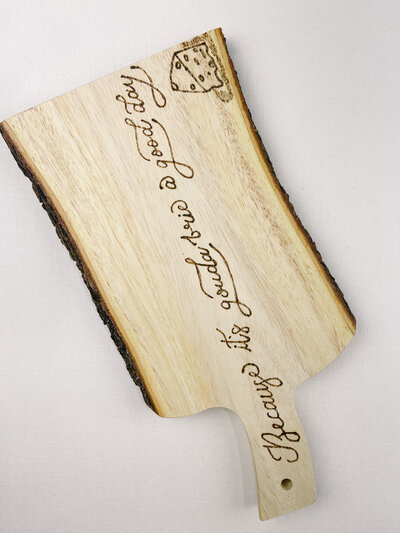 Because it's gouda brie a good day